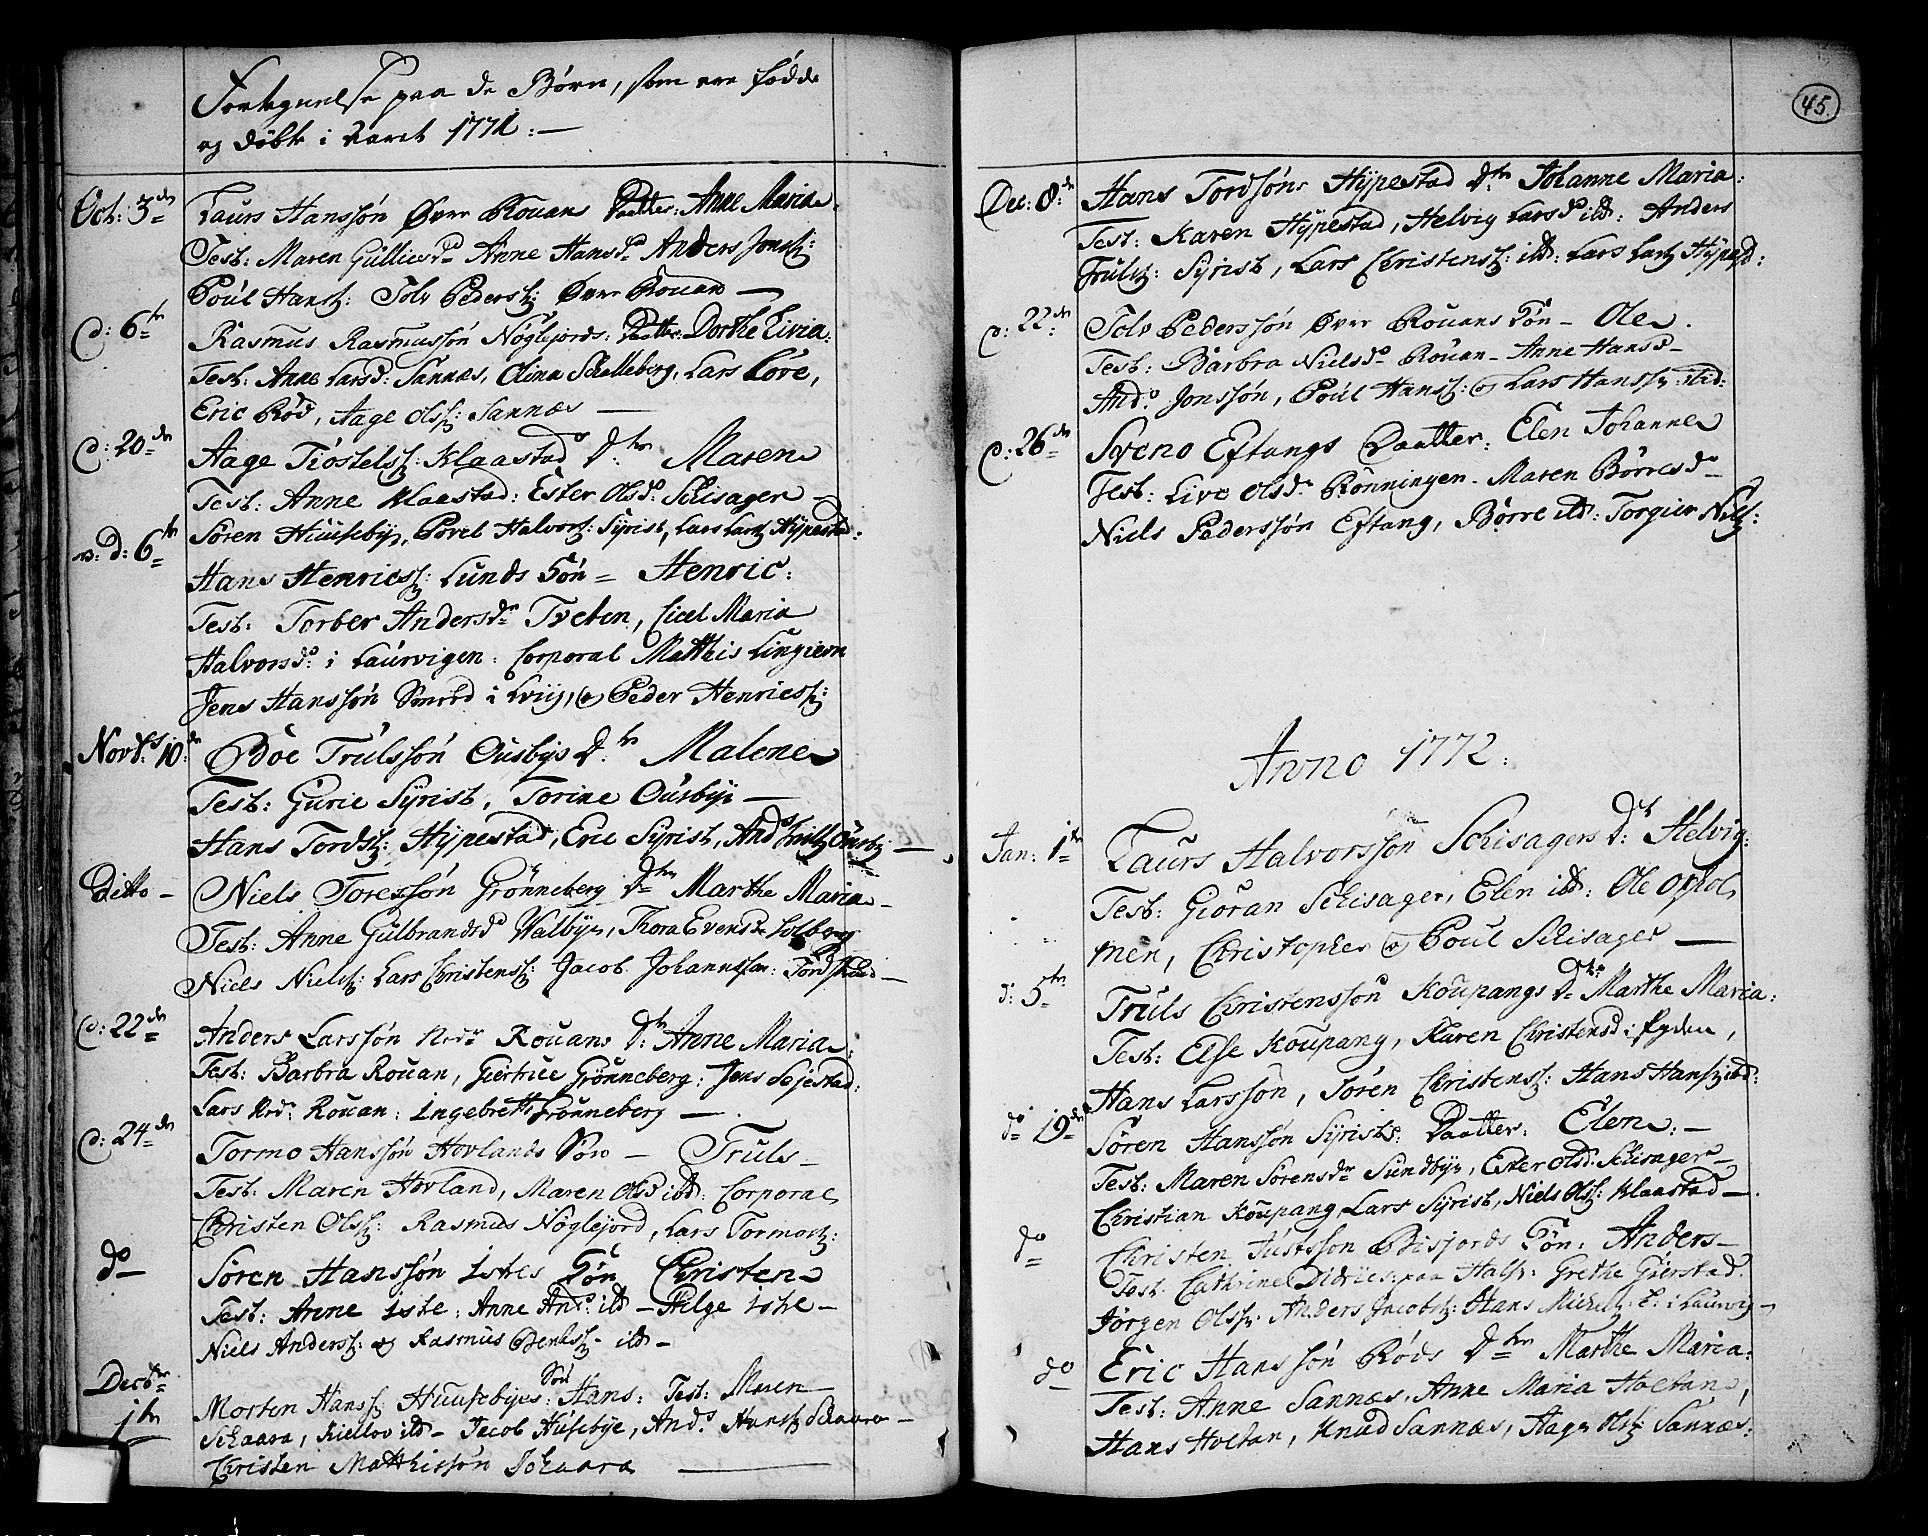 Fortegnelse paa de Børn, som ere fødde
og døbte i Aaret 1771:—
Oct: 3de Laurs Hanssøn Øvre Rouans Daatter: Anne Maria.
Test: Maren Gulliesdr Anne Hansdr Anders Jonss:
Poul Hanss: Tolv Pederss: Øvre Rouan —
d: 6te Rasmus Rasmussøn Nøglejords: Daatter: Dorthe Livia:
Test: Anne Larsd: Sannæs, Olina Schelleberg, Lars Løve,
Eric Rød, Aage Olss: Sannæs —
d: 20de Aage Tiøstelss: Klaastad Dtr Maren
Test: Anne Klaastad: Ester Olsdr Schisager —
Søren Huuseby, Povel Halvors: Syrist, Lars Larss Hypestad:
d: 6te Hans Henricss: Lunds Søn = Henric:
Test: Torber Andersdr Tveten, Cicel Maria
Halvorsdr i Laurvigen: Corporal Matthis Lingiern
Jens Hanssøn Smed i Lviig, & Peder Henricss:
Novbr: 10de Boe Trulssøn Ousbys Dtr Malene
Test: Gurie Syrist, Torine Ousbye —
Hans Tordss: Hypestad, Eric Syrist, Ands Trulss Ousby —
Ditto — Niels Toressøn Grønneberg Dtr Marthe Maria —
Test: Anne Gulbrandsdr Walbye, Thora Evensdr Solberg
Niels Nielss: Lars Christenss: Jacob Johannssøn:
d: 22de Anders Larssøn Nedr Rouans Dtr Anne Maria:
Test: Barbra Rouan, Giertrue Grønneberg: Jens Sejestad:
Lars Nedr Rouan: Ingebrett Grønneberg —
d: 24de Tormo Hanssøn Hovlands Søn — Truls —
Test: Maren Hovland, Maren Olsd ibd: Corporal
Christen Olss: Rasmus Nøglejord, Lars Tormoss:
do — Søren Hanssøn Istres Søn Christen
Test: Anne Iste: Anne Andr ibd — Helge Iste —
Niels Anderss: og Rasmus Bentss: ibd —
Decbr 1te Morten Hanss: Huusebyes: Søn Hans: Test: Maren
Schaara, Kiellov ibd — Jacob Huusebye, Ands Hanss Schaara —
Christen Matthissøn Schaara —
45.
Dec: 8de Hans Tordsøns Hypestad Dtr Johanne Maria:
Test: Karen Hypestad, Helvig Larsdr ibd: Anders
Trulss: Syrist, Lars Christenss: ibd: Lars Larss Hypestd:
d: 22de Tolv Pederssøn Øvre Rouans Søn — Ole.
Test: Barbra Nielsdr Rouan — Anne Hansd —
Ands Jonssøn, Poul Hanss: & Lars Hanssøn ibid:
d: 26de Sveno Eftangs Daatter: Elen Johanne
Test: Live Olsdr Rønningen — Maren Børresdr
Niels Pederssøn Eftang, Børre ibd: Torgier Nielss:
Anno 1772:
Jan: 1te Laurs Halvorssøn Schisagers Dtr Helvig:
Test: Giøran Schisager, Elen ibd: Ole Ophol
men, Christopher & Poul Schisager —
d: 5te Truls Christenssøn Koupangs Dtr Marthe Maria:
Test: Else Koupang, Karen Christensd i Byden,
Hans Larssøn, Søren Christenss: Hans Hanss ibd:
do 19de Søren Hanssøn Syrists: Daatter: Elen: —
Test: Maren Sørensdr Sundbye, Ester Olsd: Schisager —
Christian Koupang Lars Syrist, Niels Olss: Klaastad —.
do Christen Justssøn Bisjords Søn: Anders —
Test: Cathrine Didrics: paa Halsn: Grethe Gierstad:
Jørgen Olss: Anders Jacobss: Hans Michelss: i Laurvig —
do Eric Hanssøn Røds Dtr Marthe Maria:
Test: Anne Sannæs, Anne Maria Holtan,
Hans Holtan, Knud Sannæs, Aage Olss: Sannæs: